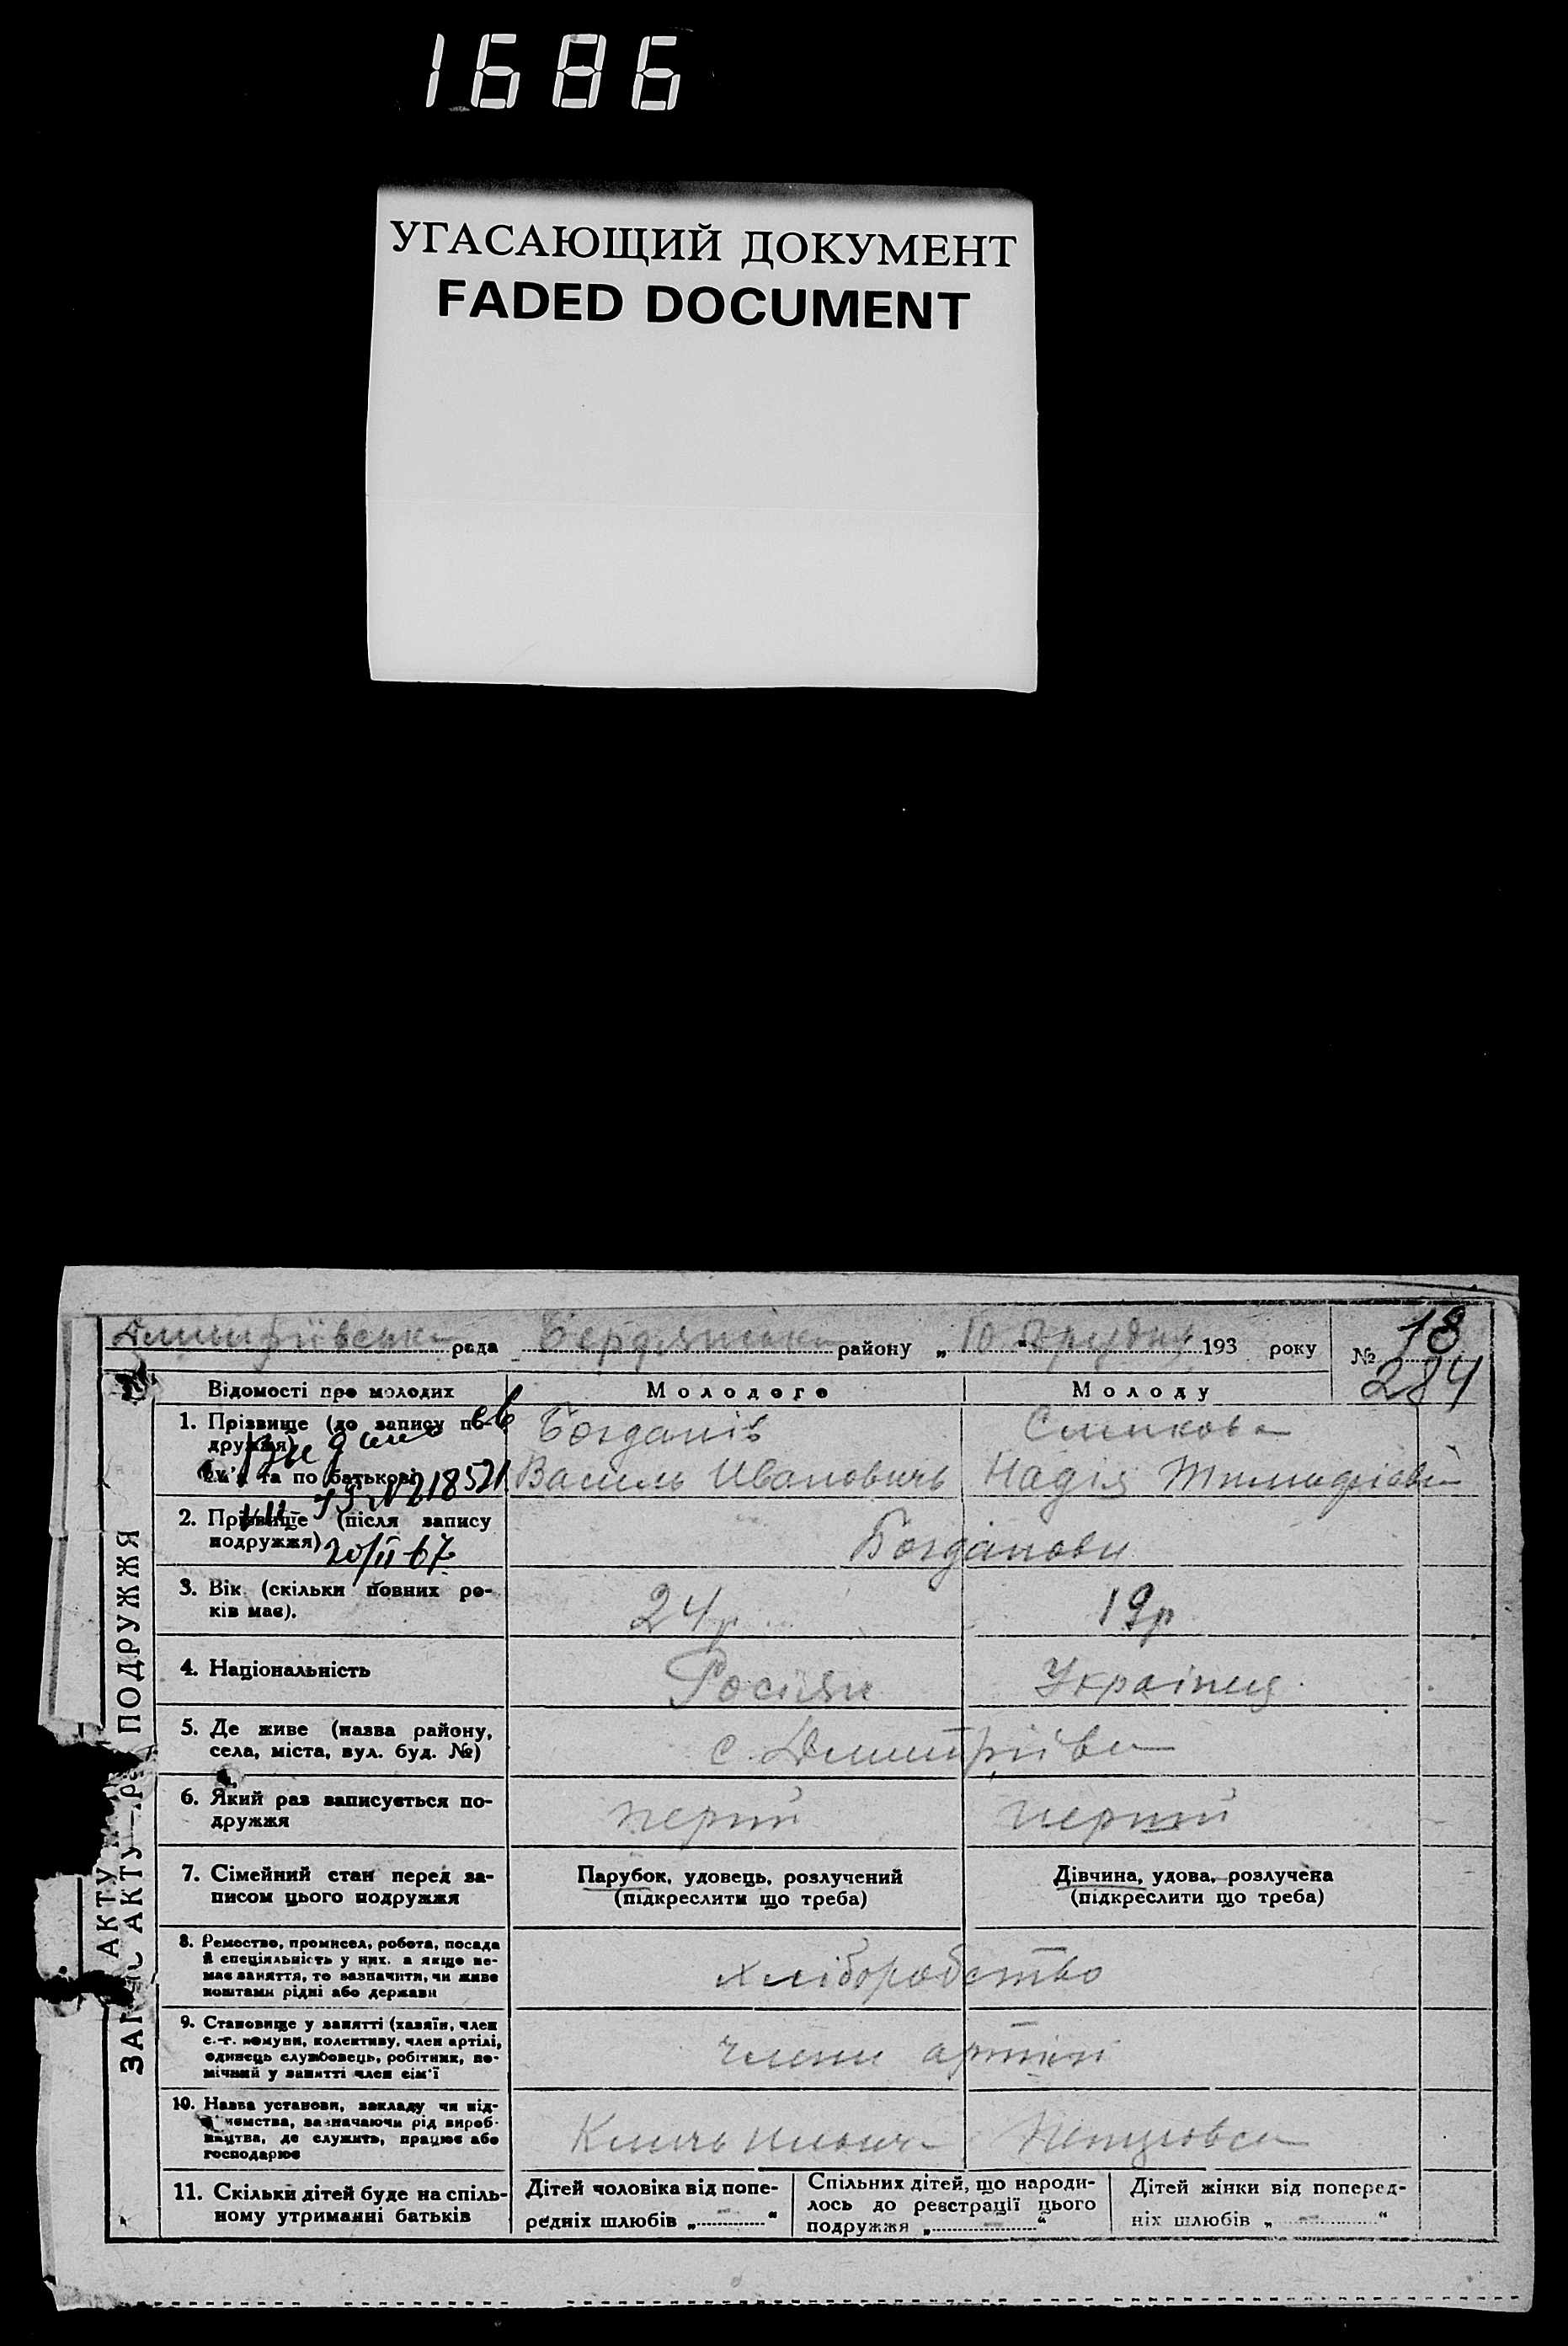 1686
УГАСАЮЩИЙ ДОКУМЕНТ
FADED DOCUMENT
Дмитріївська рада Бердянська району „ 10 " Грудня 193 року № 18
284
Відомості про молодих
Молодого
Молоду
1. Прізвище (до запису по-
дружжя)
Ім'я та по батькові
Видано св
218521
20/II-67
Богданів
Василь Ивановичь
Надія
2. Прізвище (після запису
подружжя)
Богданови
3. Вік (скільки повних ро-
ків має).
24р
19р
4. Національність
Росіян
Украінця
5. Де живе (назва району,
села, міста, вул. буд. №)
с. Дмитріівка
6. Який раз записується по-
дружжя
перший
перший
7. Сімейний стан перед за-
писом цього подружжя
Парубок, удовець, розлучений
(підкреслити що треба)
Дівчина, удова, розлучена
(підкреслити що треба)
8. Ремество, промисел, робота, посада
й спеціяльність у них, а якщо не-
має заняття, то зазначити, чи живе
коштами рідні або держави
хліборобство
9. Становище у занятті (хазяїн, член
с.-г. комуни, колективу, член артілі,
одинець службовець, робітник, по-
мічний у занятті член сім'ї
члени артіли
10. Назва установи, закладу чи під-
приємства, зазначаючи рід вироб-
ництва, де служить, працює або
господарює
11. Скільки дітей буде на спіль-
ному утриманні батьків
Дітей чоловіка від попе-
редніх шлюбів „ — "
Спільних дітей, що народи-
лось до реєстрації цього
подружжя „ — "
Дітей жінки від поперед-
ніх шлюбів „ — "
ПОДРУЖЖЯ
АКТУ
АКТУ